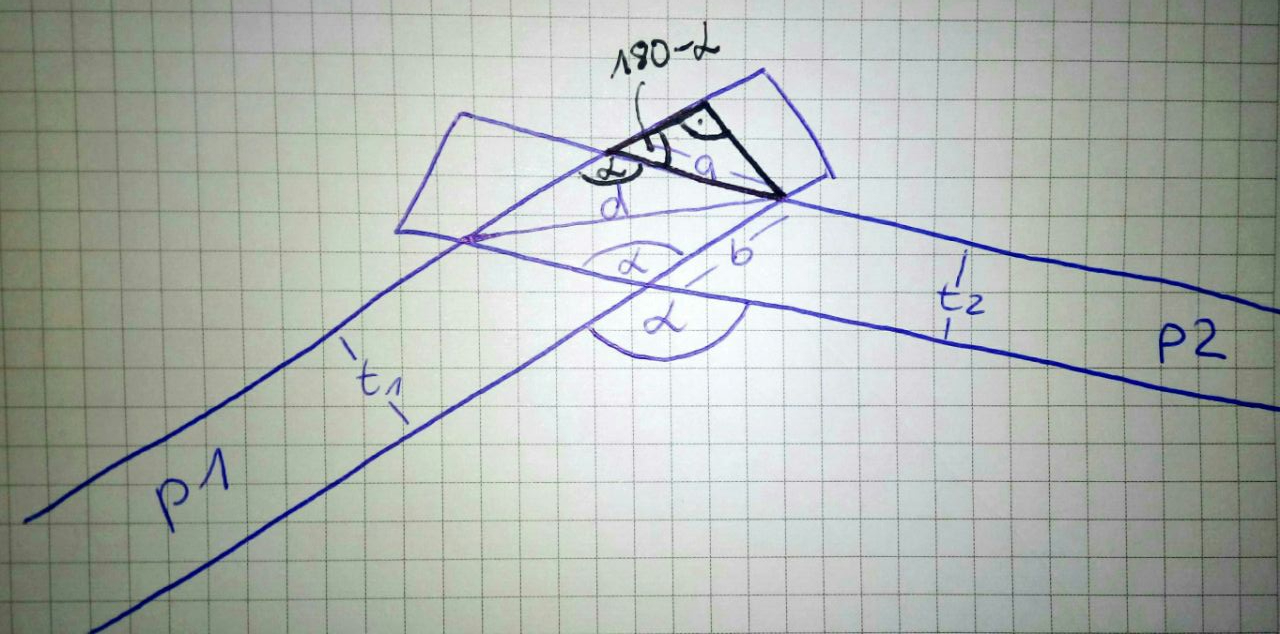 180-α
α
a
d
α
b
α
t2
p2
t1
p1